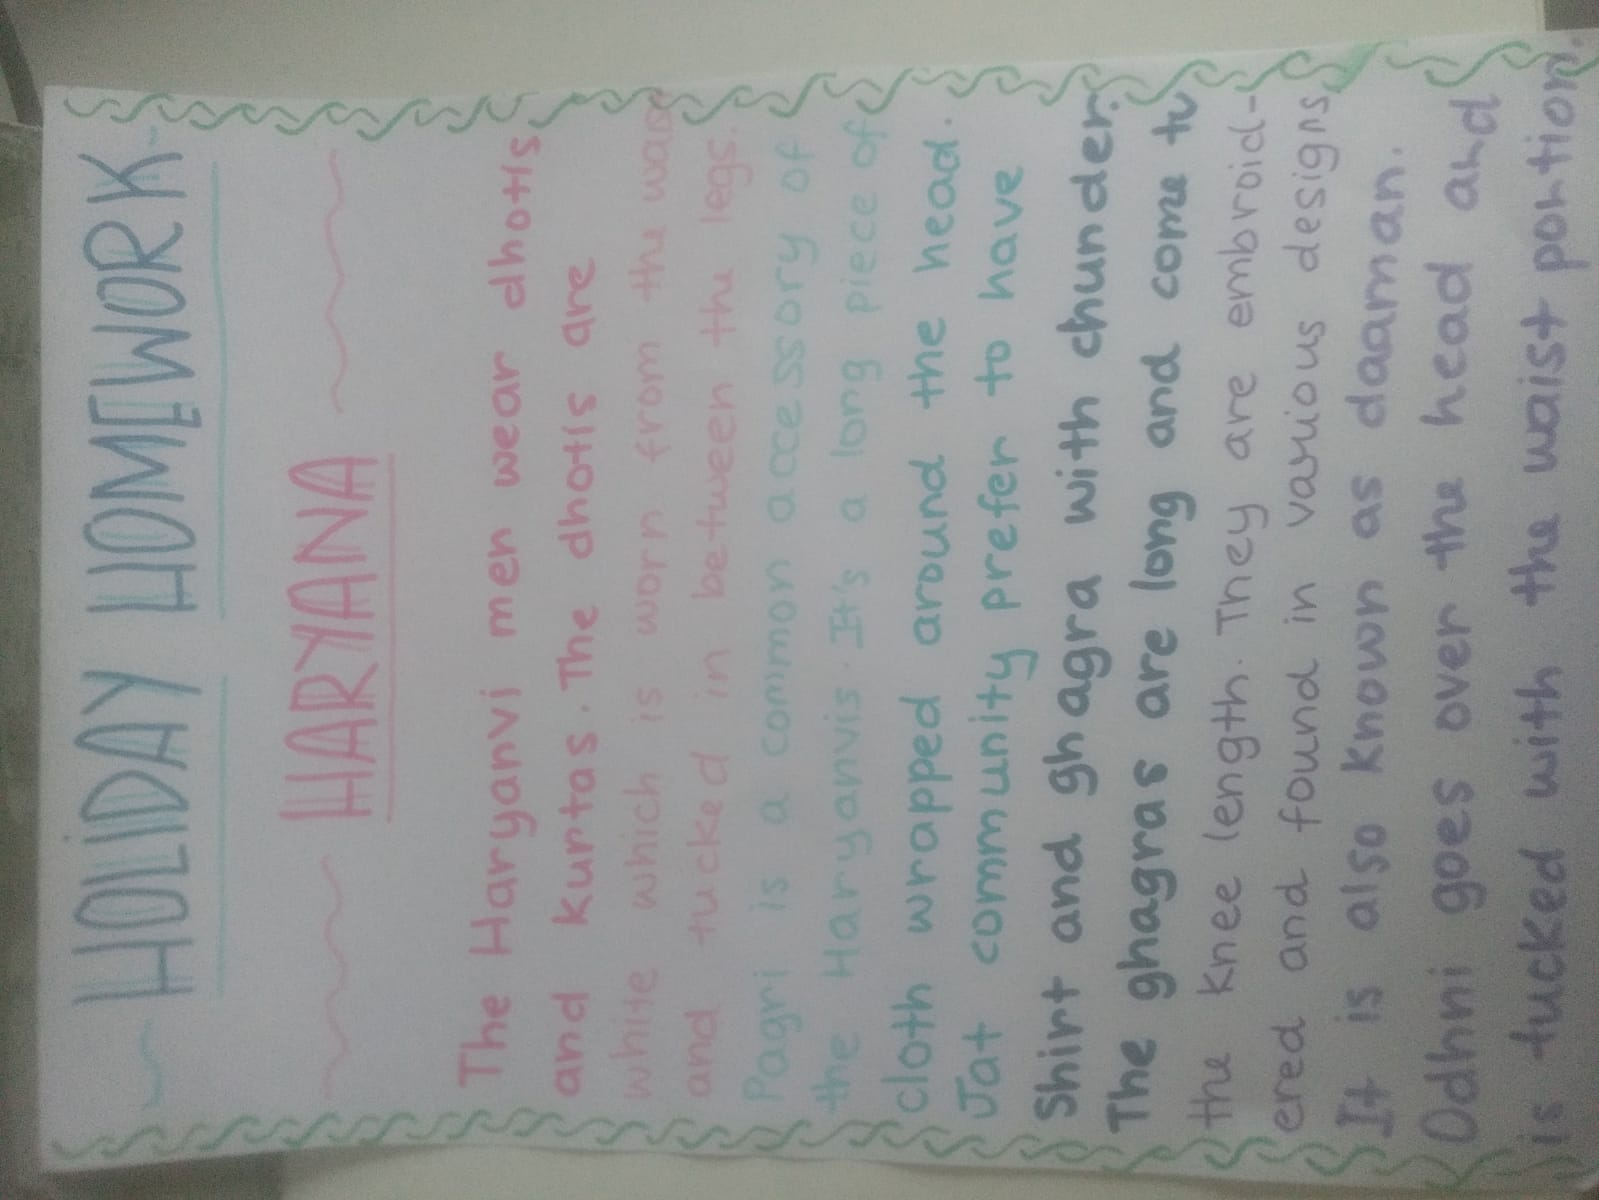 HOLIDAY HOMEWORK
HARYANA
The Haryanvi men wear dhotis
and kurtas. The dhotis are
white which is worn from the
and tucked in between the legs.
Pagri is a common accessory of
the Haryanvis. It's a long piece of
cloth wrapped around the head.
Jat community prefer to have
Shirt and ghagra with chunder.
The ghagras are long and come to
the knee length. They are embroid-
ered and found in various designs
It is also known as daaman.
Odhni goes over the head and
is tucked with the waist portion.